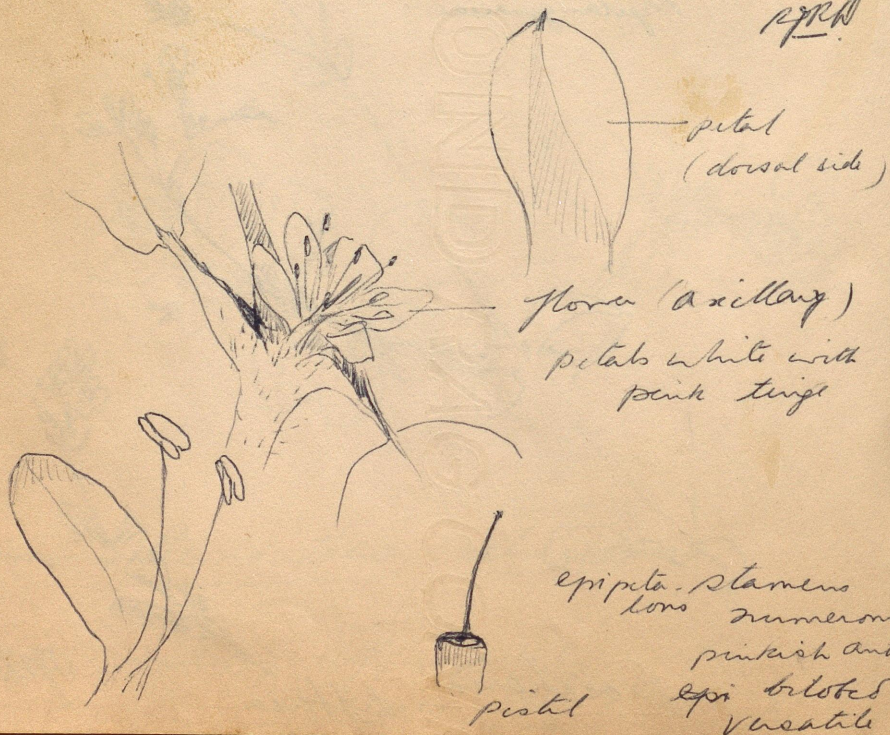 petal
(dorsal side)
flower (axillary)
petals white with
pink tinge
epipeta- stamens
lous numerous
pinkish and
epi bilobed
versatile
pistil